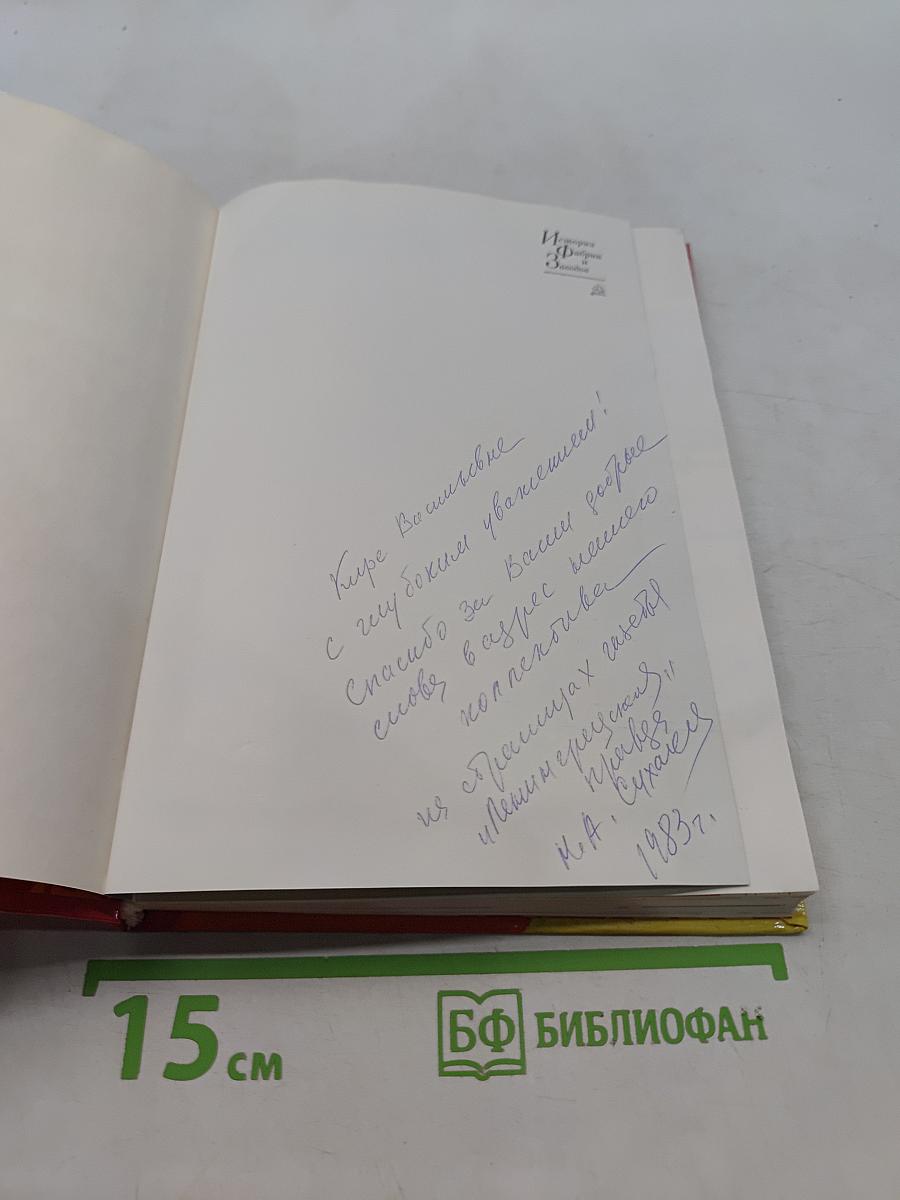 История
Фабрик и
Заводов
Кире Васильевне
с глубоким уважением!
Спасибо за Ваши добрые
слова в адрес нашего
коллектива
на страницах газеты
"Ленинградская
правда"
М.А.
1983 г.
15 см
БФ БИБЛИОФАН